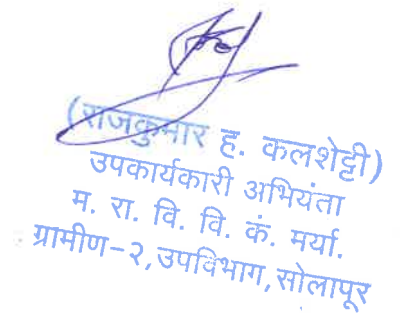 (राजकुमार ह. कलशेट्टी)
उपकार्यकारी अभियंता
म. रा. वि. वि. कं. मर्या.
ग्रामीण-२,उपविभाग,सोलापूर